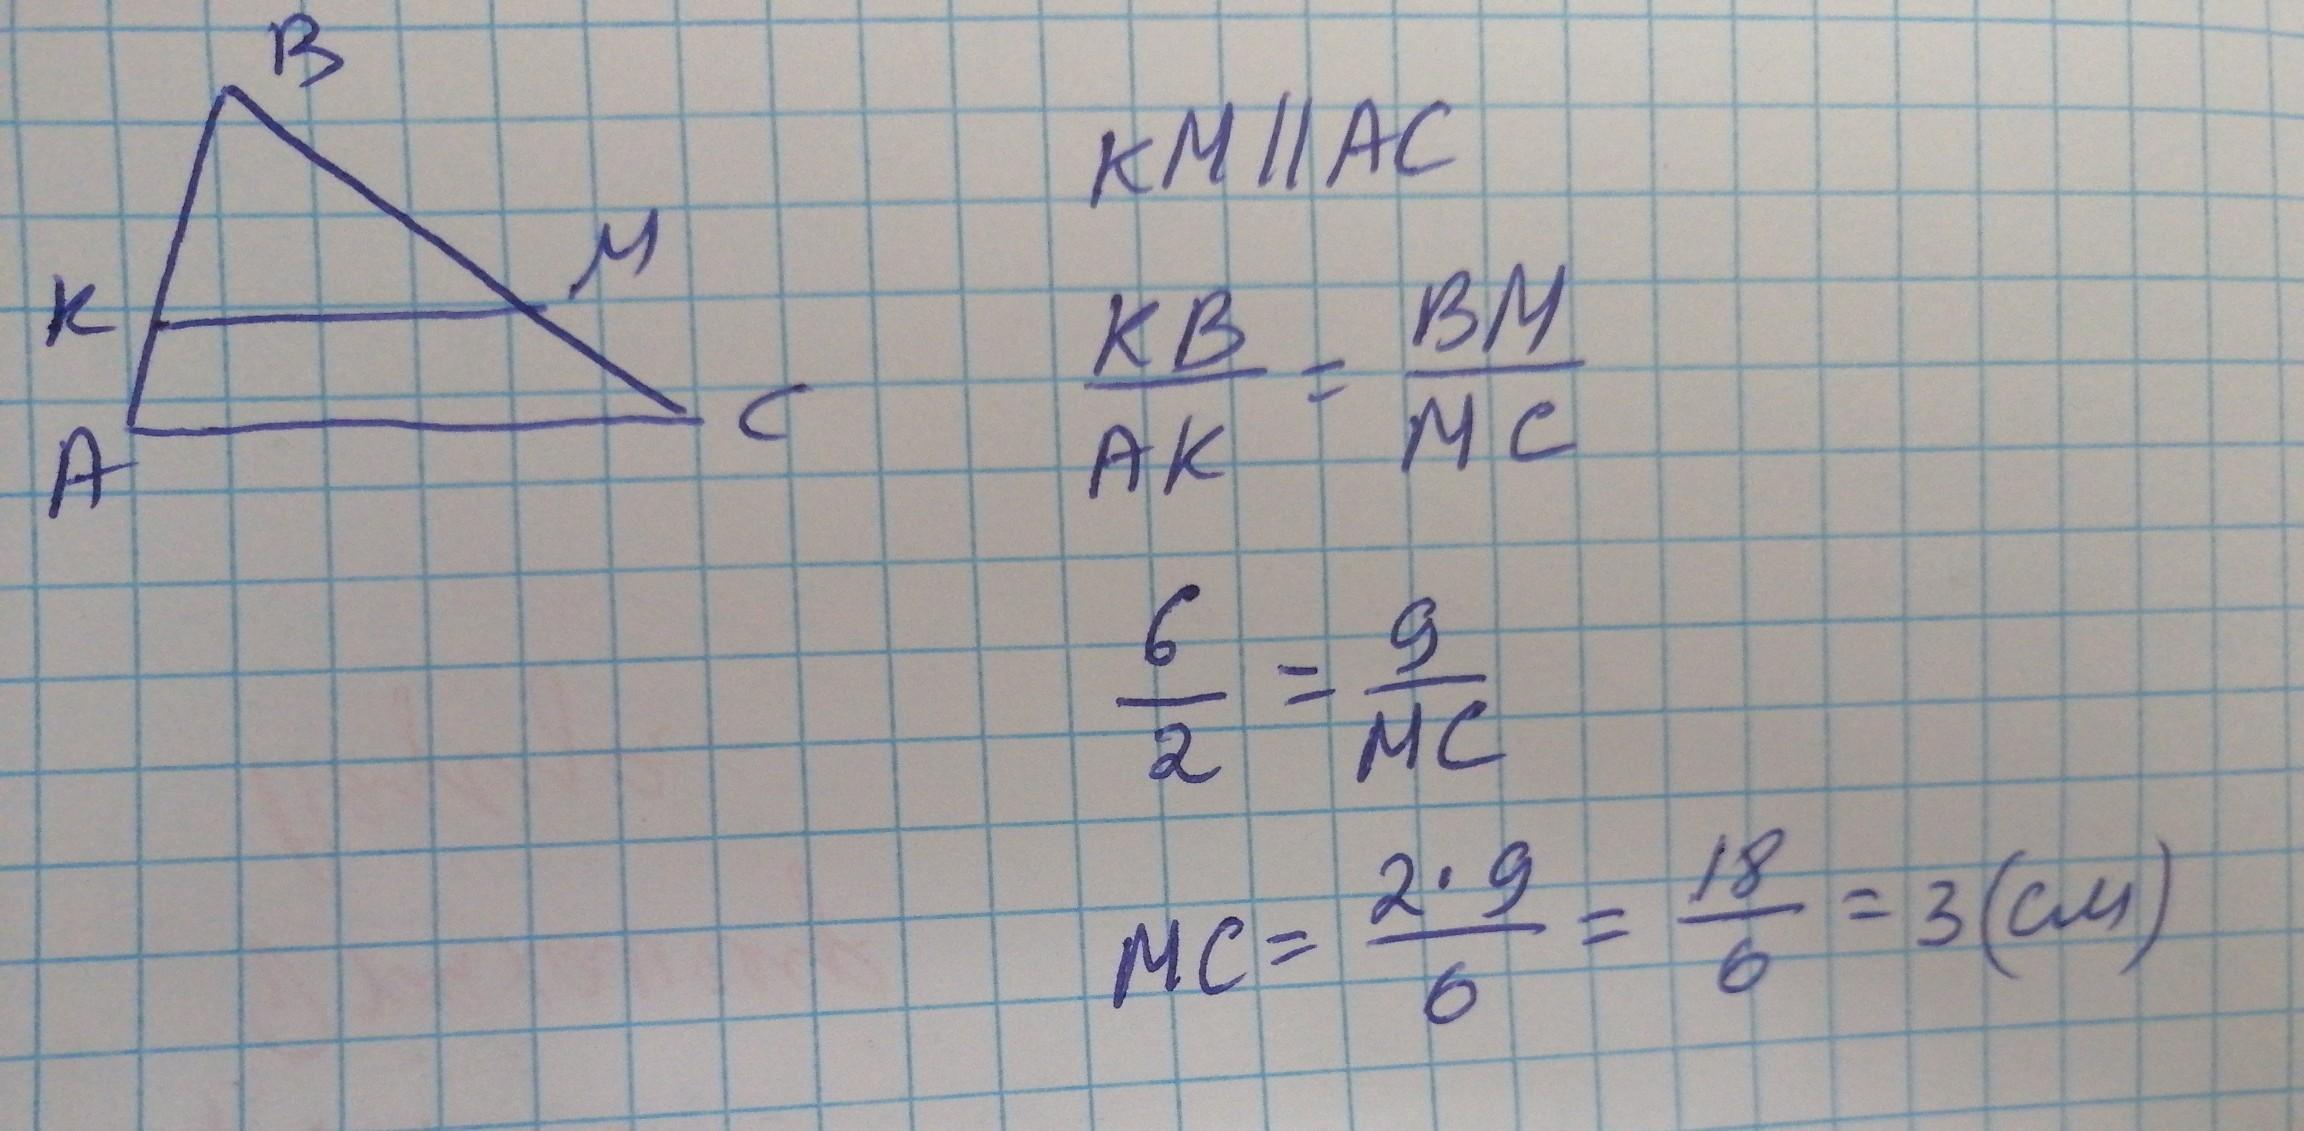 B
K
M
A
C
KM || AC
KB/AK = BM/MC
6/2 = 9/MC
MC = 2·9/6 = 18/6 = 3 (см)